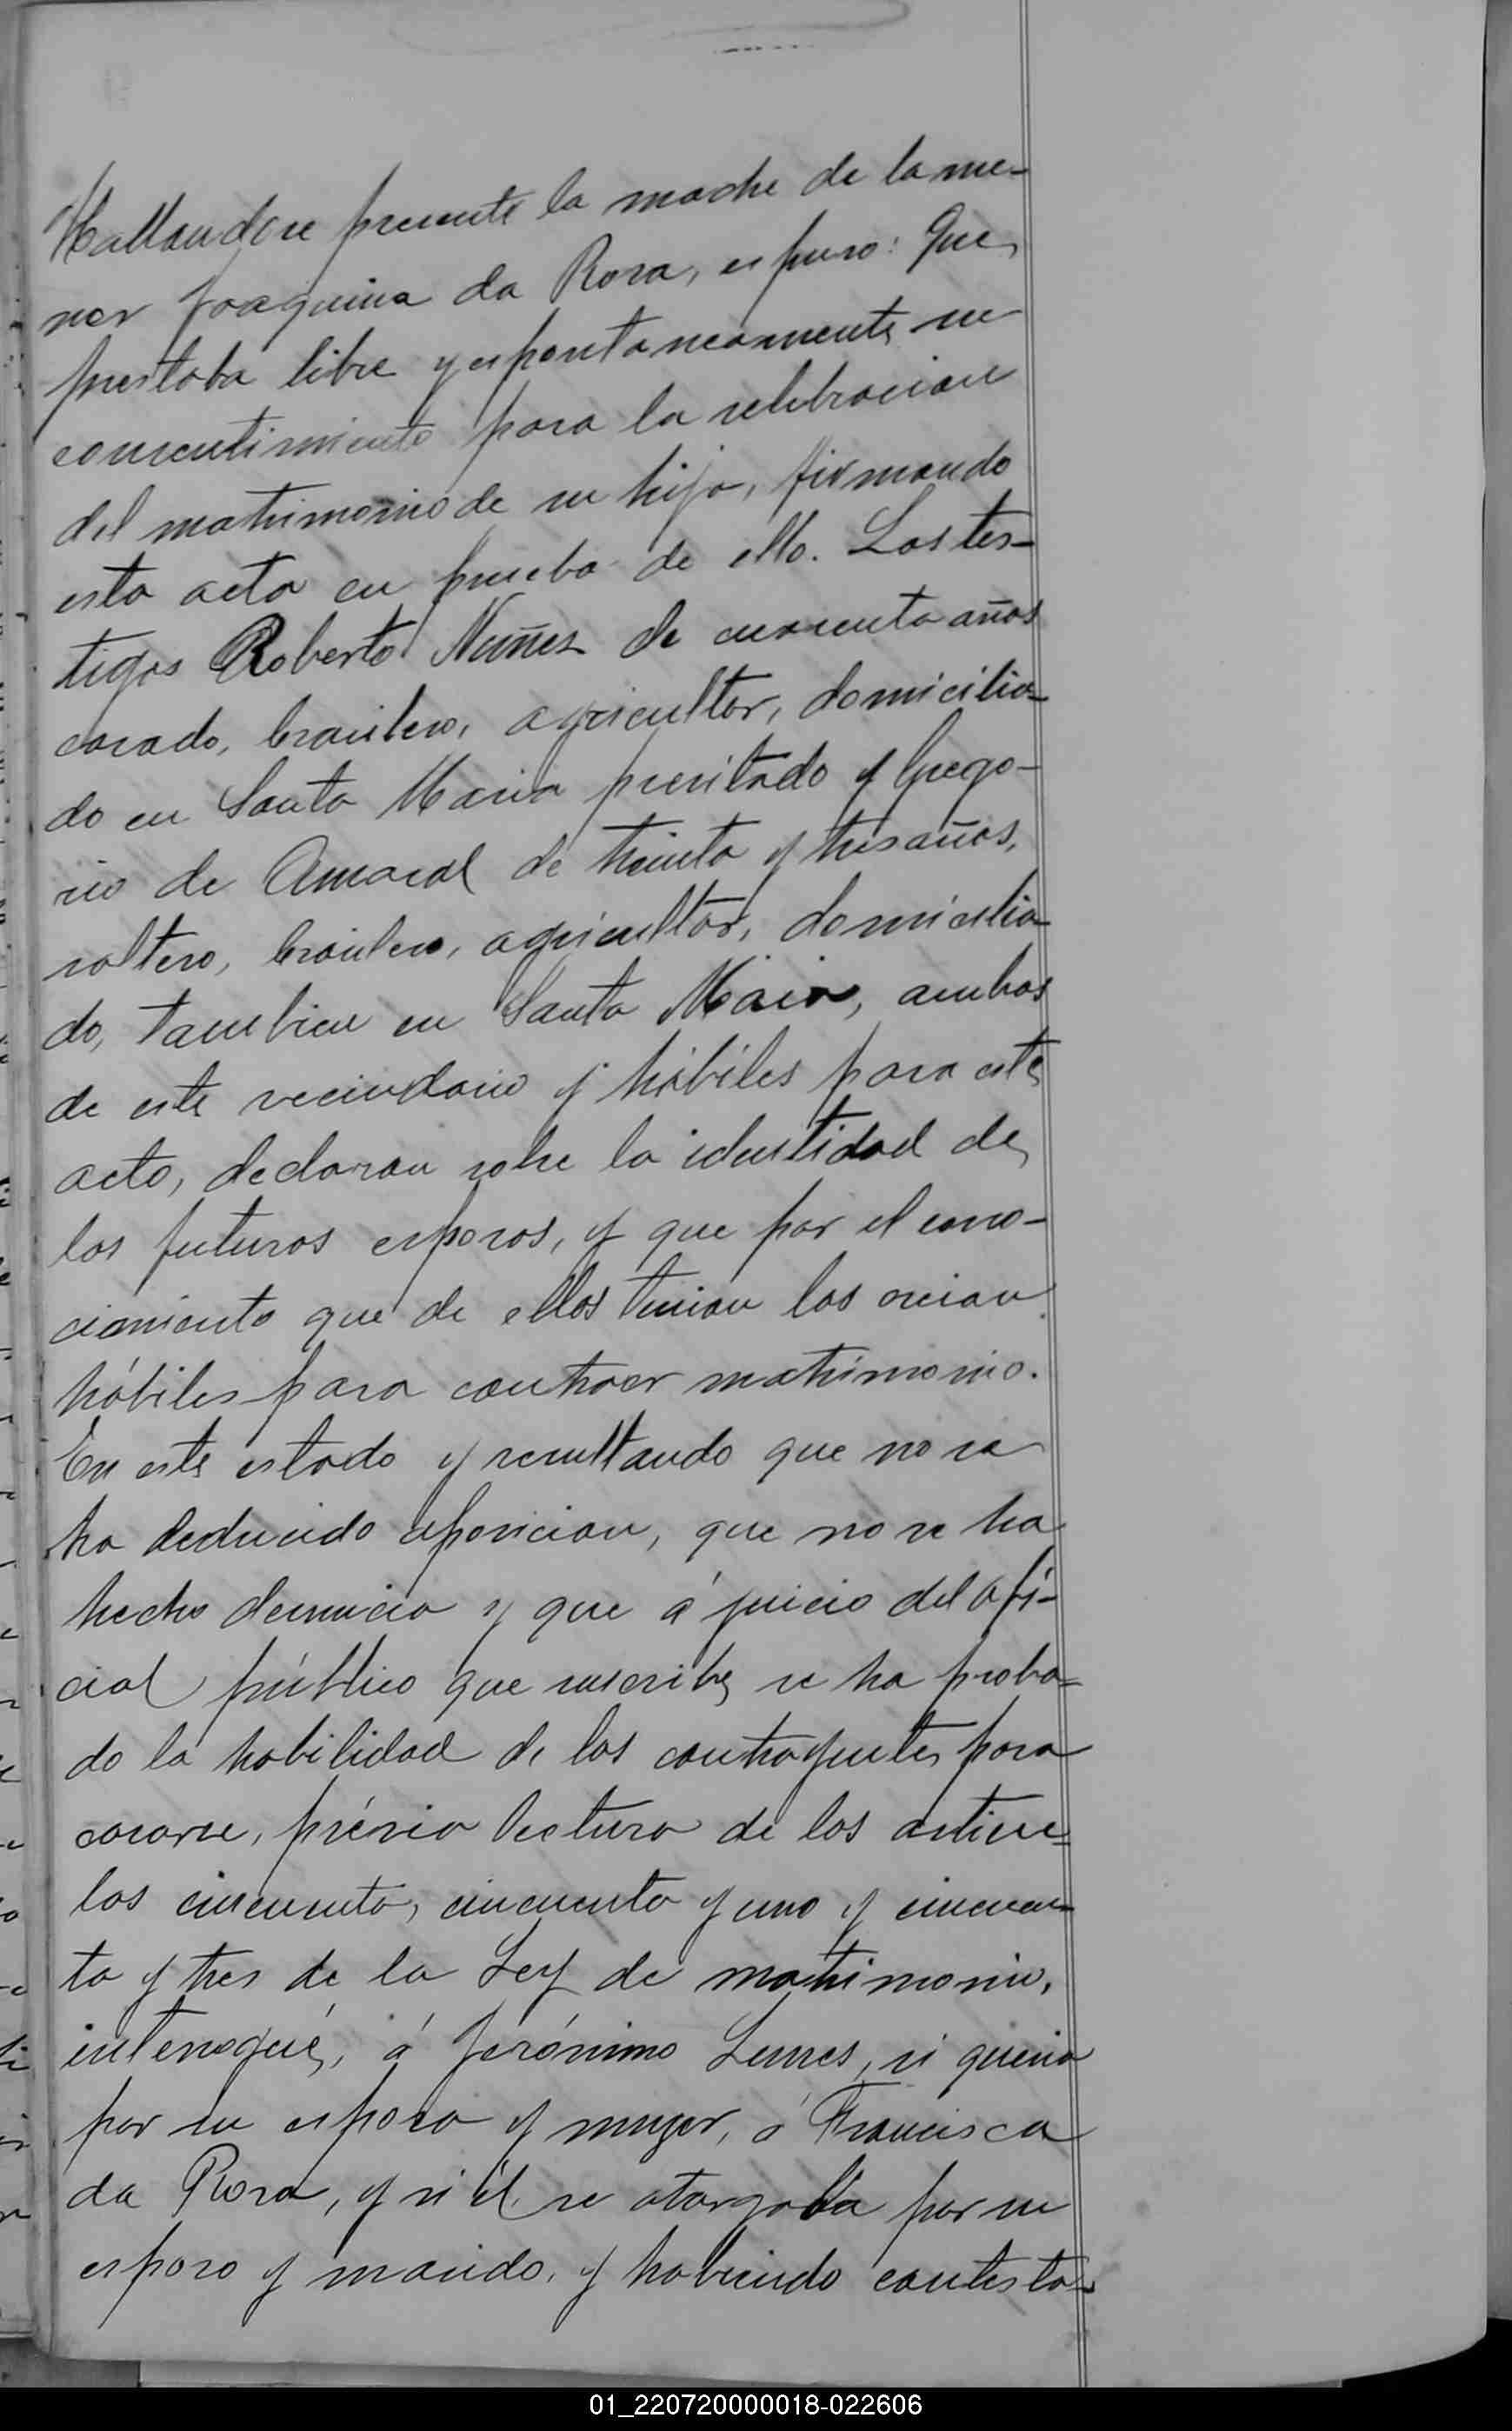 Hallandose presente la madre de la me-
nor Joaquina da Rosa, espuso: Que
prestaba libre y espontaneamente su
consentimiento para la celebracion
del matrimonio de su hija, firmando
esta acta en prueba de ello. Los tes-
tigos Roberto Nuñes de cuarenta años
casado, brasilero, agricultor, domicilia-
do en Santa Maria precitado y Grego-
rio de Amaral de treinta y tres años,
soltero, brasilero, agricultor, domicilia
do, tambien en Santa Maria, ambos
de este vecindario y hábiles para este
acto, declaran sobre la identidad de
los futuros esposos, y que por el cono-
cimiento que de ellos tenian los creian
hábiles para contraer matrimonio.
En este estado y resultando que no se
ha deducido oposicion, que no se ha
hecho denuncia y que á juicio del ofi-
cial público que suscribe se ha proba=
do la habilidad de los contrayentes para
casarse, prévia lectura de los articu=
los cincuenta, cincuenta y uno y cincuen=
ta y tres de la Ley de matrimonio,
interrogué, á Jerónimo Lemes, si queria
por su esposa y muger, á Francisca
da Rosa, y si él se otorgaba por su
esposo y marido, y habiendo contesta-
01_220720000018-022606